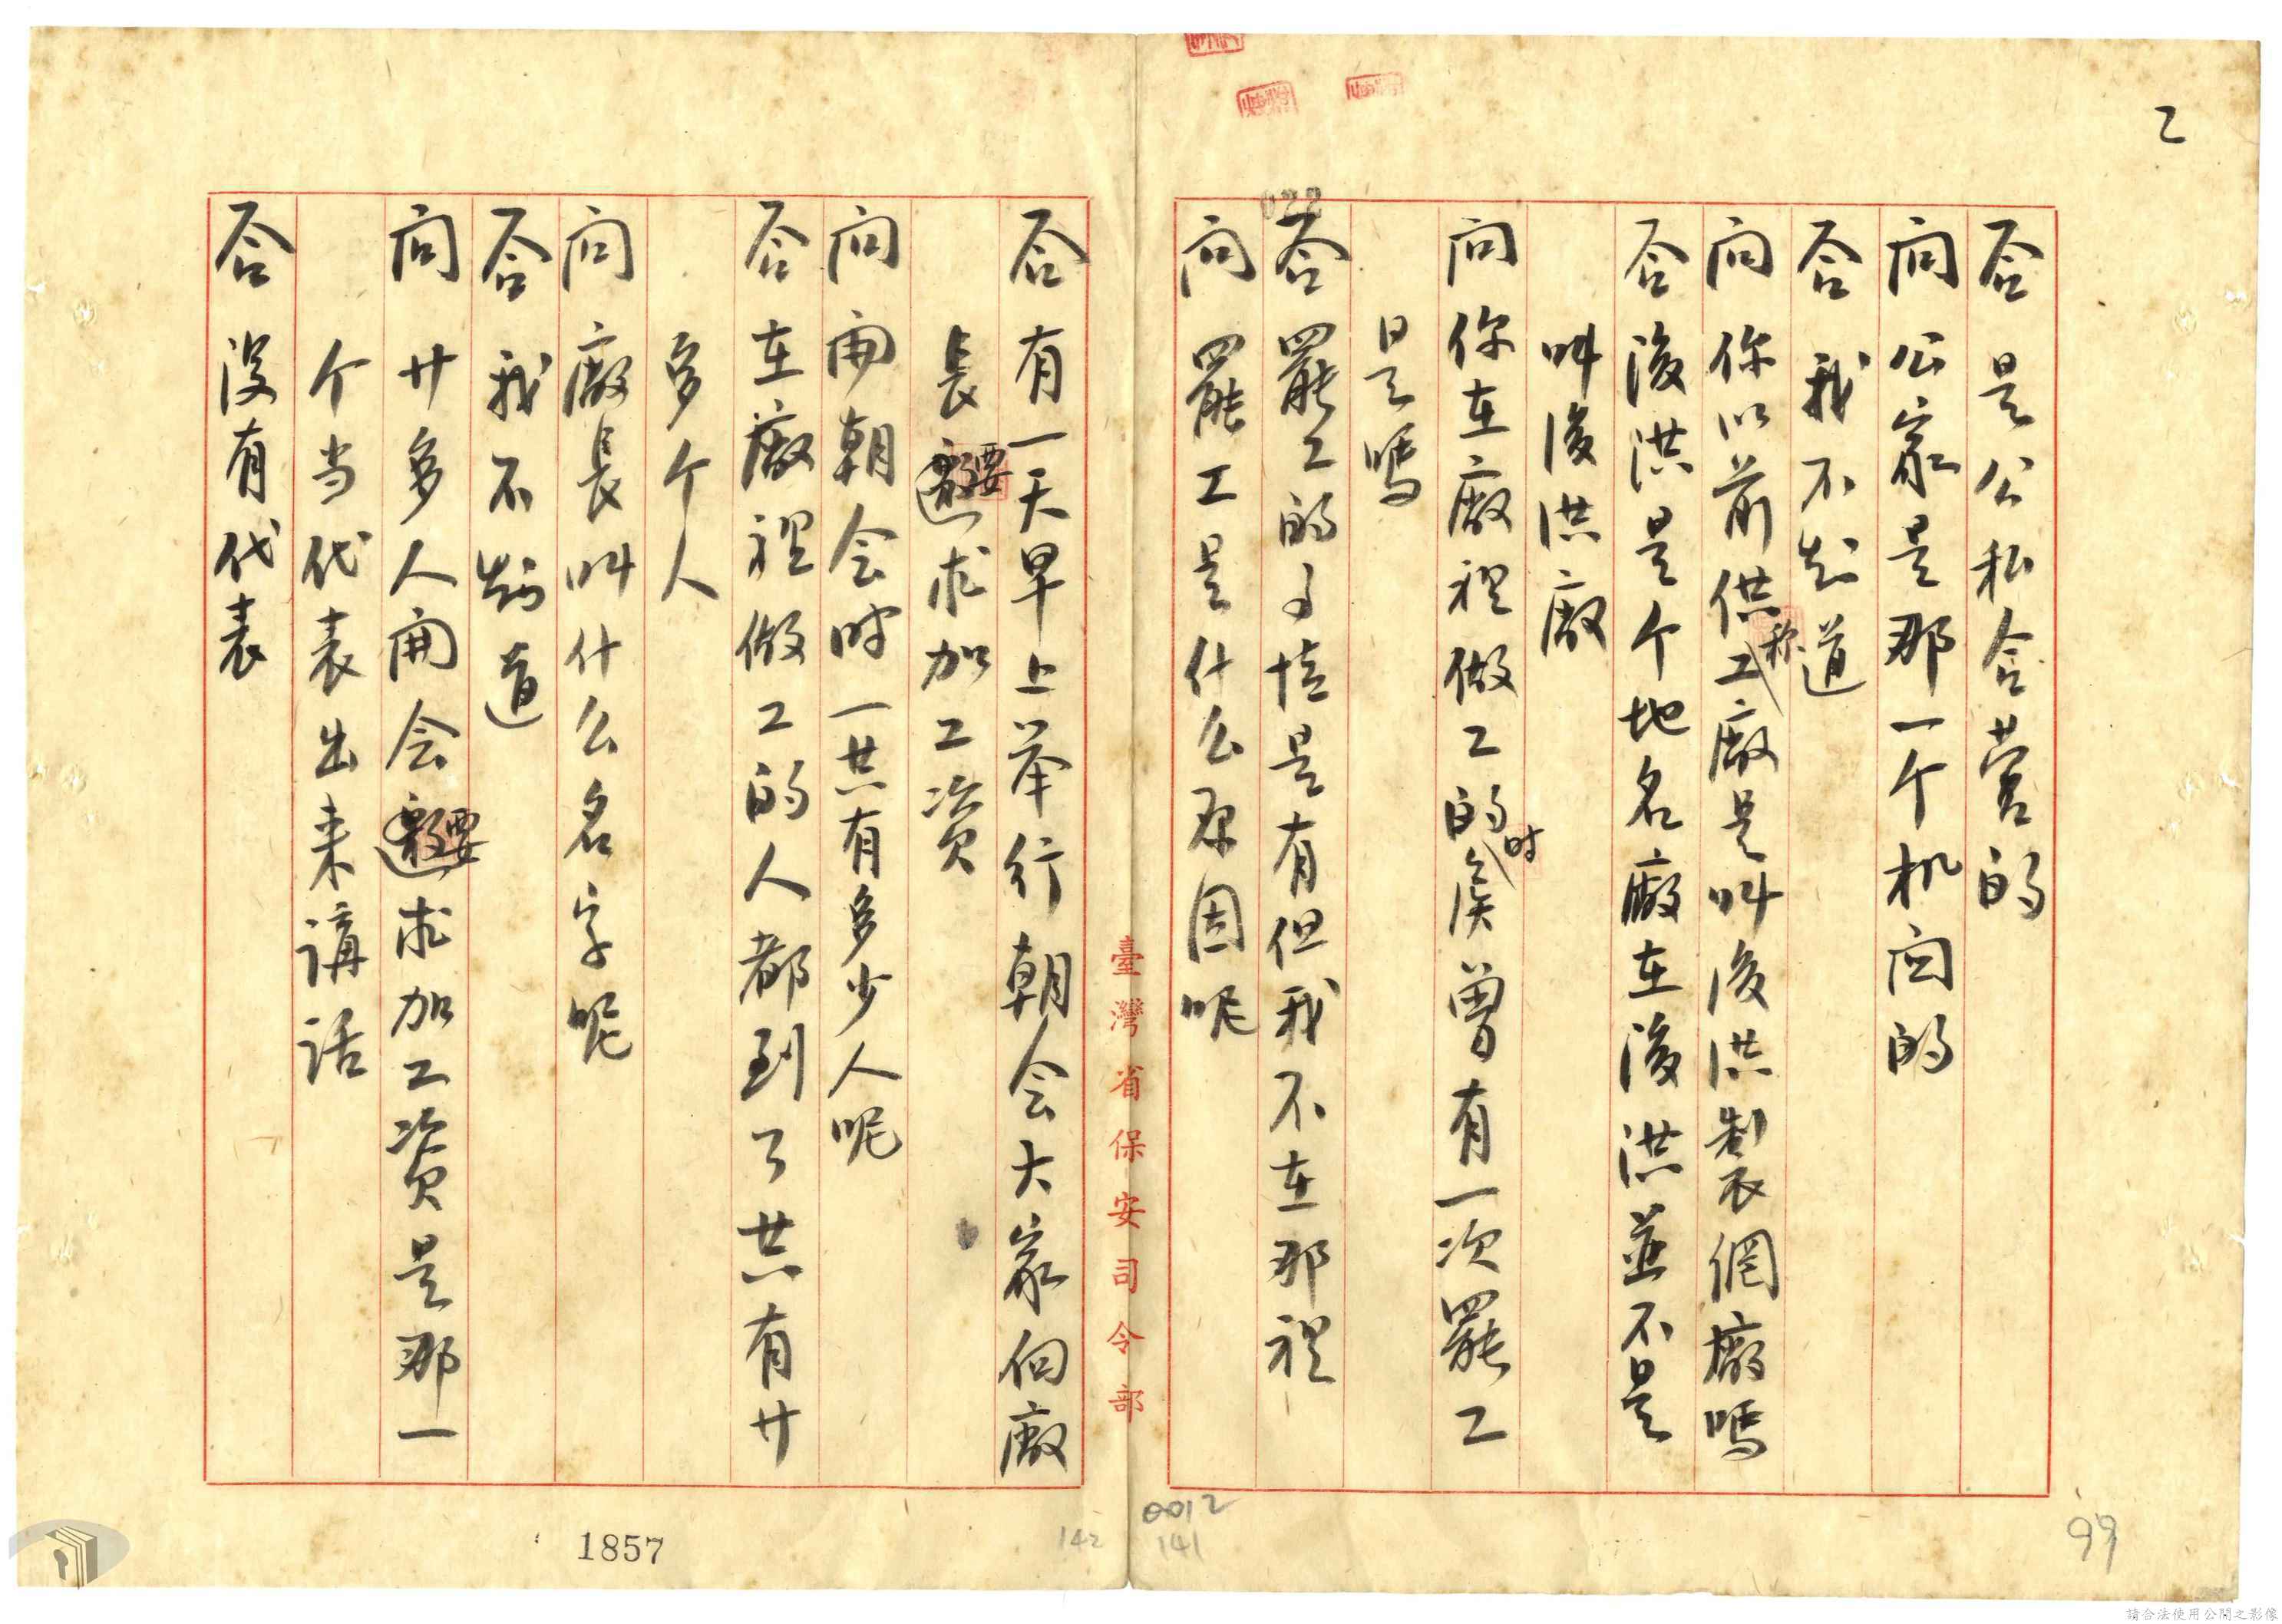 乙
答 是公私合营的
问 公家是那一个机向的
答 我不知道
问 你以前供称工廠是叫後洪製网廠嗎
答 後洪是个地名廠在後洪並不是
叫後洪廠
问 你在廠裡做工的时候曾有一次罷工
是嗎
答 罷工的事情是有但我不在那裡
问 罷工是什么原因呢
臺灣省保安司令部
答 有一天早上举行朝会大家向廠
長要求加工資
问 開朝会时一共有多少人呢
答 在廠裡做工的人都到了共有廿
多个人
问 廠長叫什么名字呢
答 我不知道
问 廿多人開会要求加工資是那一
个当代表出来講話
答 沒有代表
022
0012
141
142
99
1857
請合法使用公開之影像